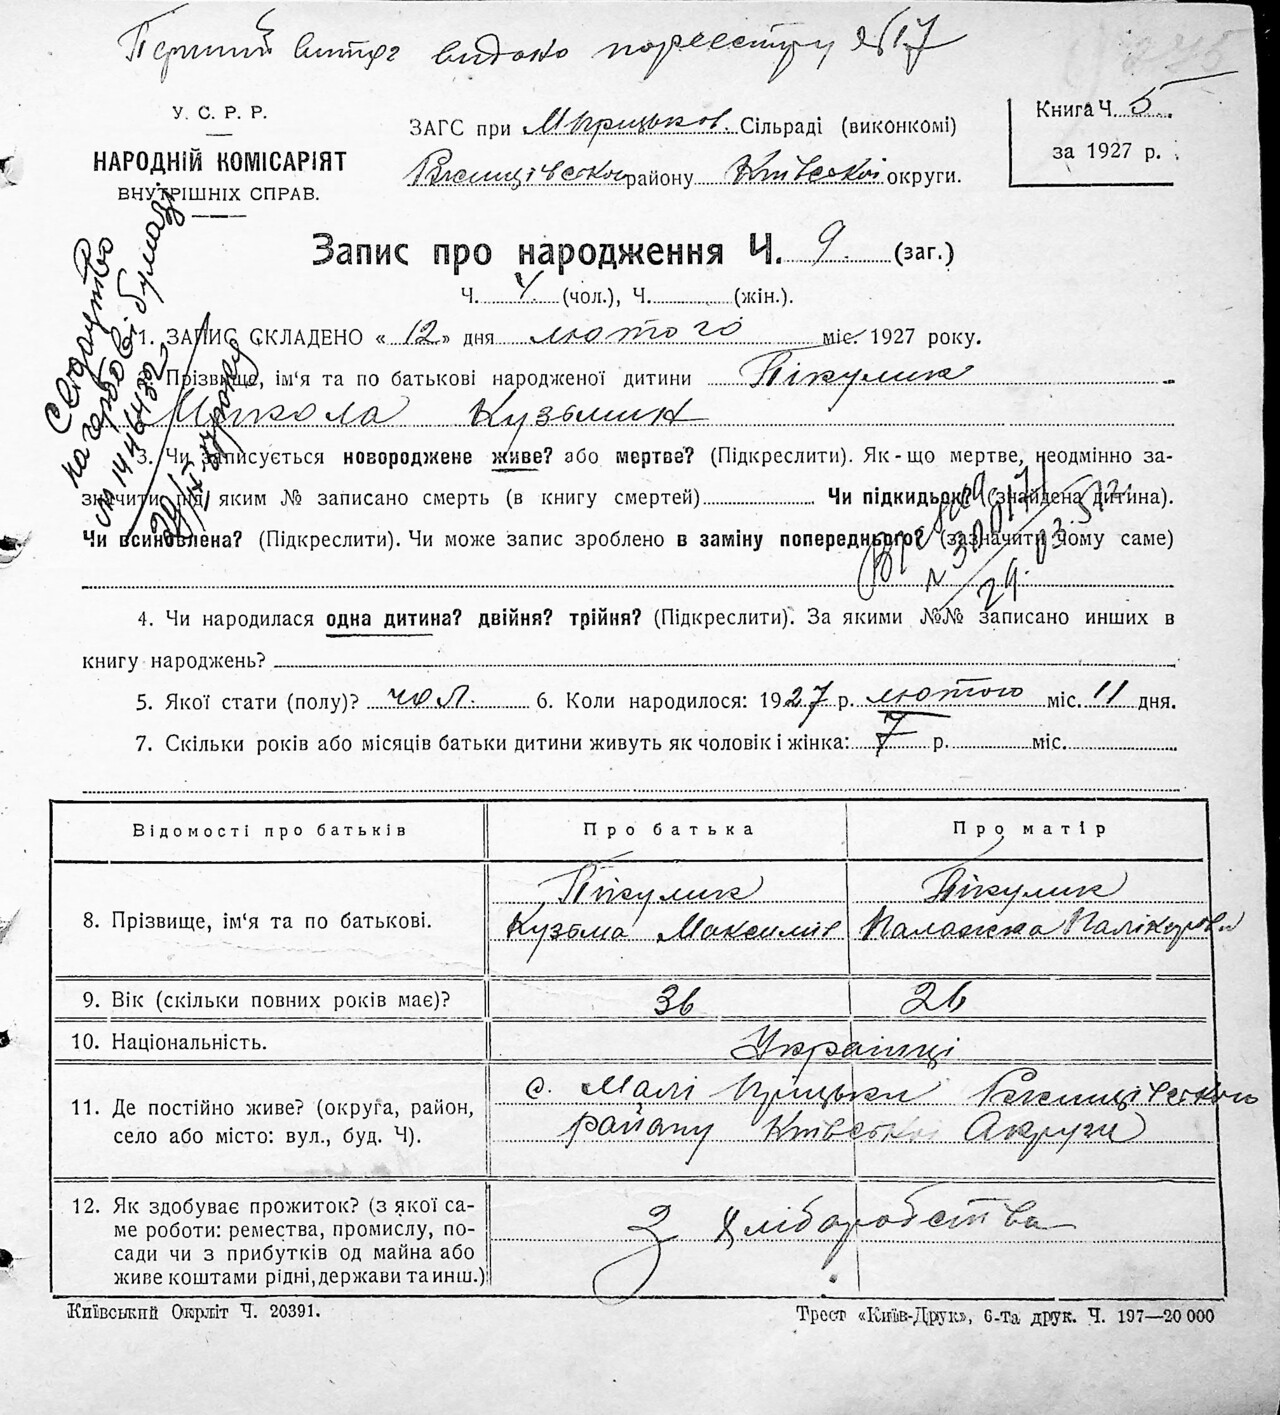 Перший витяг видано по реєстру №17
У. С. Р. Р.
НАРОДНІЙ КОМІСАРІЯТ
ВНУТРІШНІХ СПРАВ.
ЗАГС при М-Прицьков. Сільраді (виконкомі)
району Київської округи.
Книга Ч. 5
за 1927 р.
Запис про народження Ч. 9. (заг.)
Ч. 4 (чол.), Ч. (жін.).
1. ЗАПИС СКЛАДЕНО « 12 » дня лютого міс. 1927 року.
2. Прізвище, ім'я та по батькові народженої дитини Пікулик
Микола Кузьмин
3. Чи записується новороджене живе? або мертве? (Підкреслити). Як-що мертве, неодмінно за-
значити під яким № записано смерть (в книгу смертей) Чи підкидьок? (знайдена дитина).
Чи всиновлена? (Підкреслити). Чи може запис зроблено в заміну попереднього? (зазначити чому саме)
4. Чи народилася одна дитина? двійня? трійня? (Підкреслити). За якими №№ записано инших в
книгу народжень?
5. Якої стати (полу)? чол. 6. Коли народилося: 1927 р. лютого міс. 11 дня.
7. Скільки років або місяців батьки дитини живуть як чоловік і жінка: 7 р. міс.
Відомості про батьків Про батька Про матір
8. Прізвище, ім'я та по батькові. Пікулик Пікулик
Кузьма Максимів Палажка
9. Вік (скільки повних років має)? 36 26
10. Національність. Українці
11. Де постійно живе? (округа, район,
село або місто: вул., буд. Ч).
с. Малі Прицьки
району Київської Округи
12. Як здобуває прожиток? (з якої са-
ме роботи: ремества, промислу, по-
сади чи з прибутків од майна або
живе коштами рідні, держави та инш.)
З Хліборобства
Київський Окрліт Ч. 20391.
Трест «Київ-Друк», 6-та друк. Ч. 197—20 000